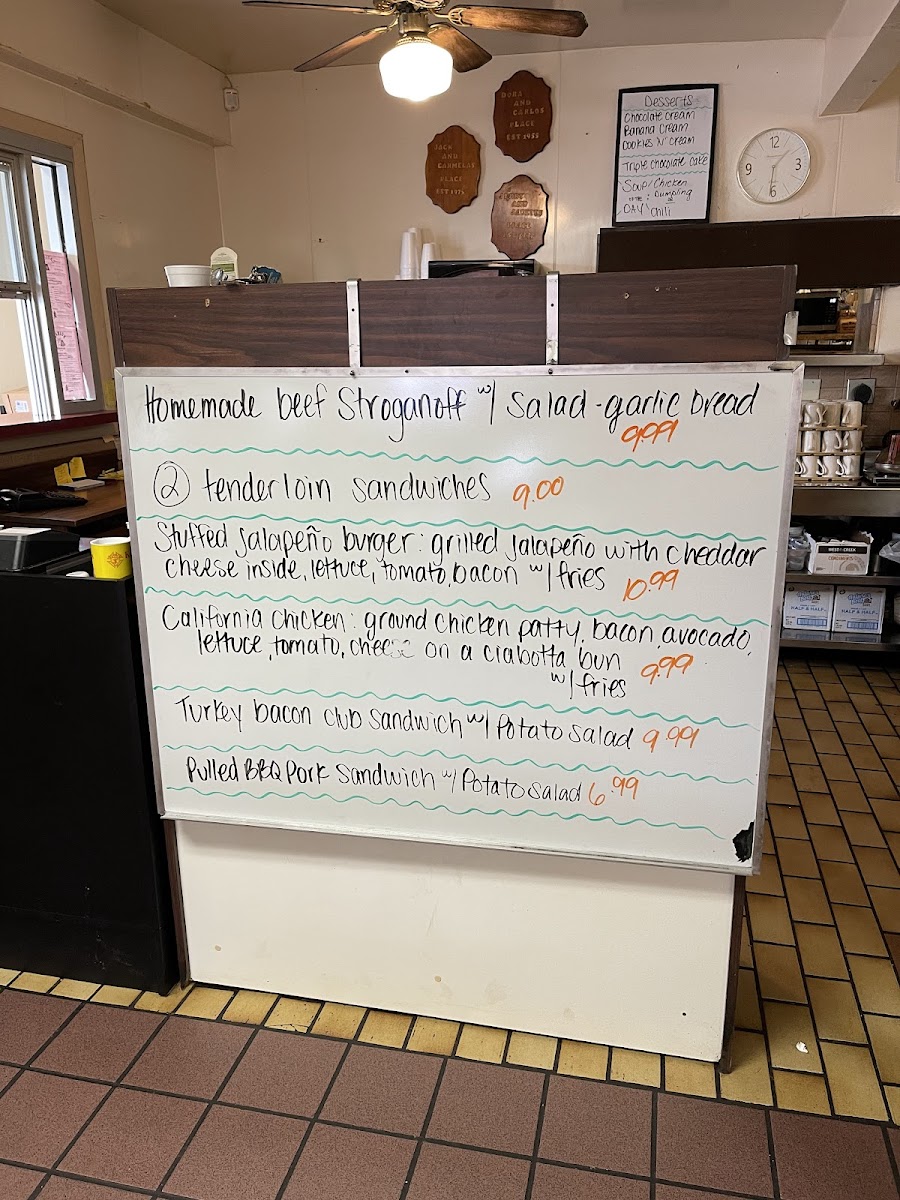 DORA
AND
CARLOS
PLACE
EST 1955
JACK
AND
CARMELAS
PLACE
EST 1975
AND
Desserts
Chocolate cream
Banana Cream
Cookies 'N' Cream
Triple Chocolate Cake
Soup/Chicken
Dumpling
DAY\Chili
12
3
6
9
Homemade beef Stroganoff w/ Salad - garlic bread
9.99
② tenderloin sandwiches 9.00
Stuffed jalapeño burger: grilled jalapeño with cheddar
cheese inside, lettuce, tomato, bacon w/ fries 10.99
California chicken: ground chicken patty, bacon, avocado,
lettuce, tomato, cheese on a ciabotta bun 9.99
w/ fries
Turkey bacon club sandwich w/ Potato salad 9.99
Pulled BBQ Pork Sandwich w/ Potato salad 6.99
HALF & HALF
HALF & HALF